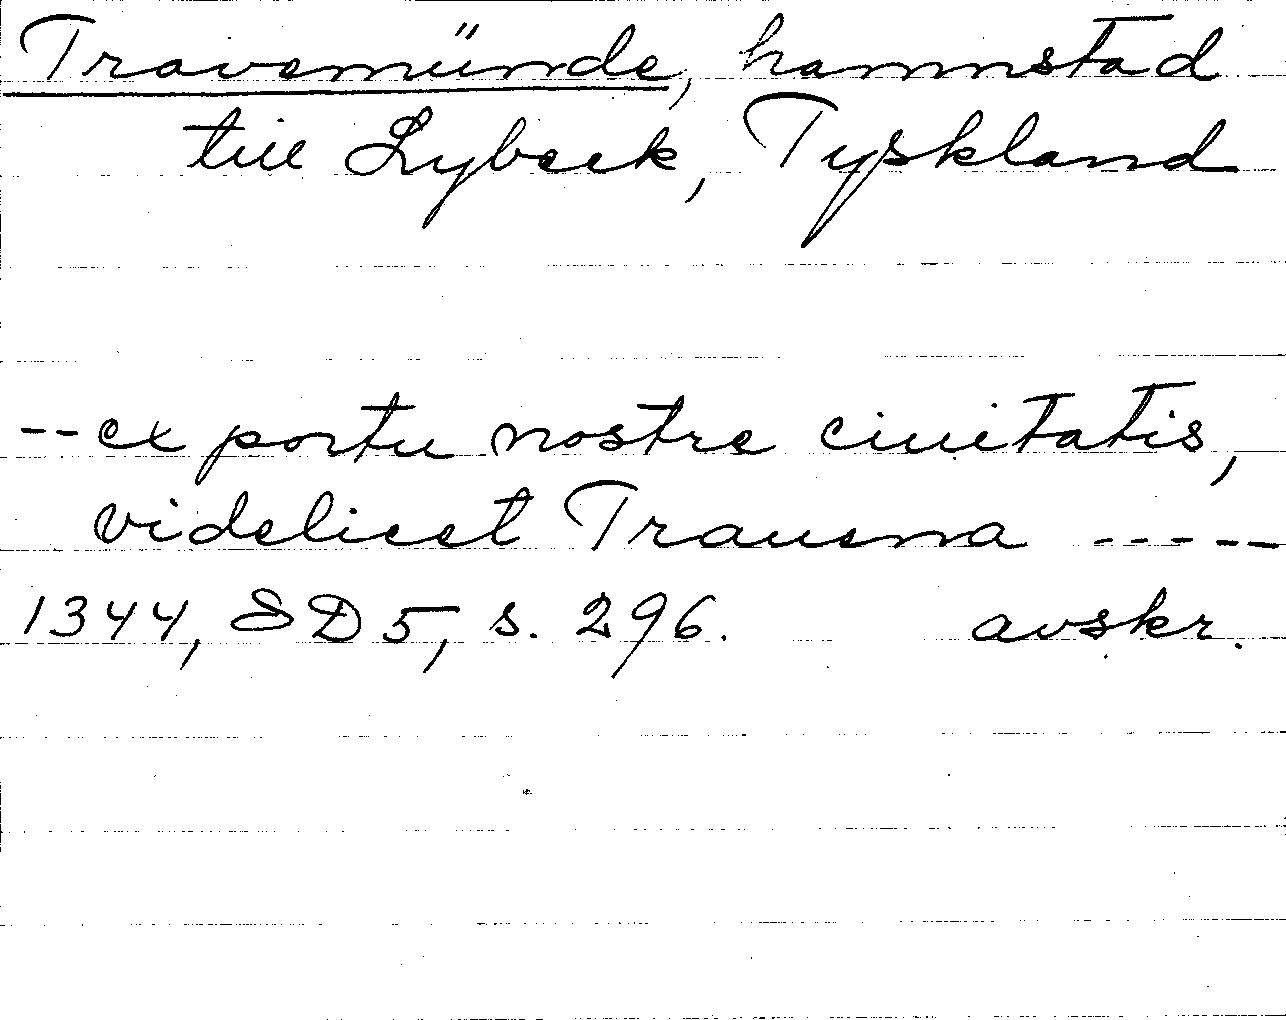 Travemünde, hamnstad
till Lybeck, Tyskland
--ex portu nostre ciuitatis,
videlicet Trauena -----
1344, SD 5, s. 296. avskr.